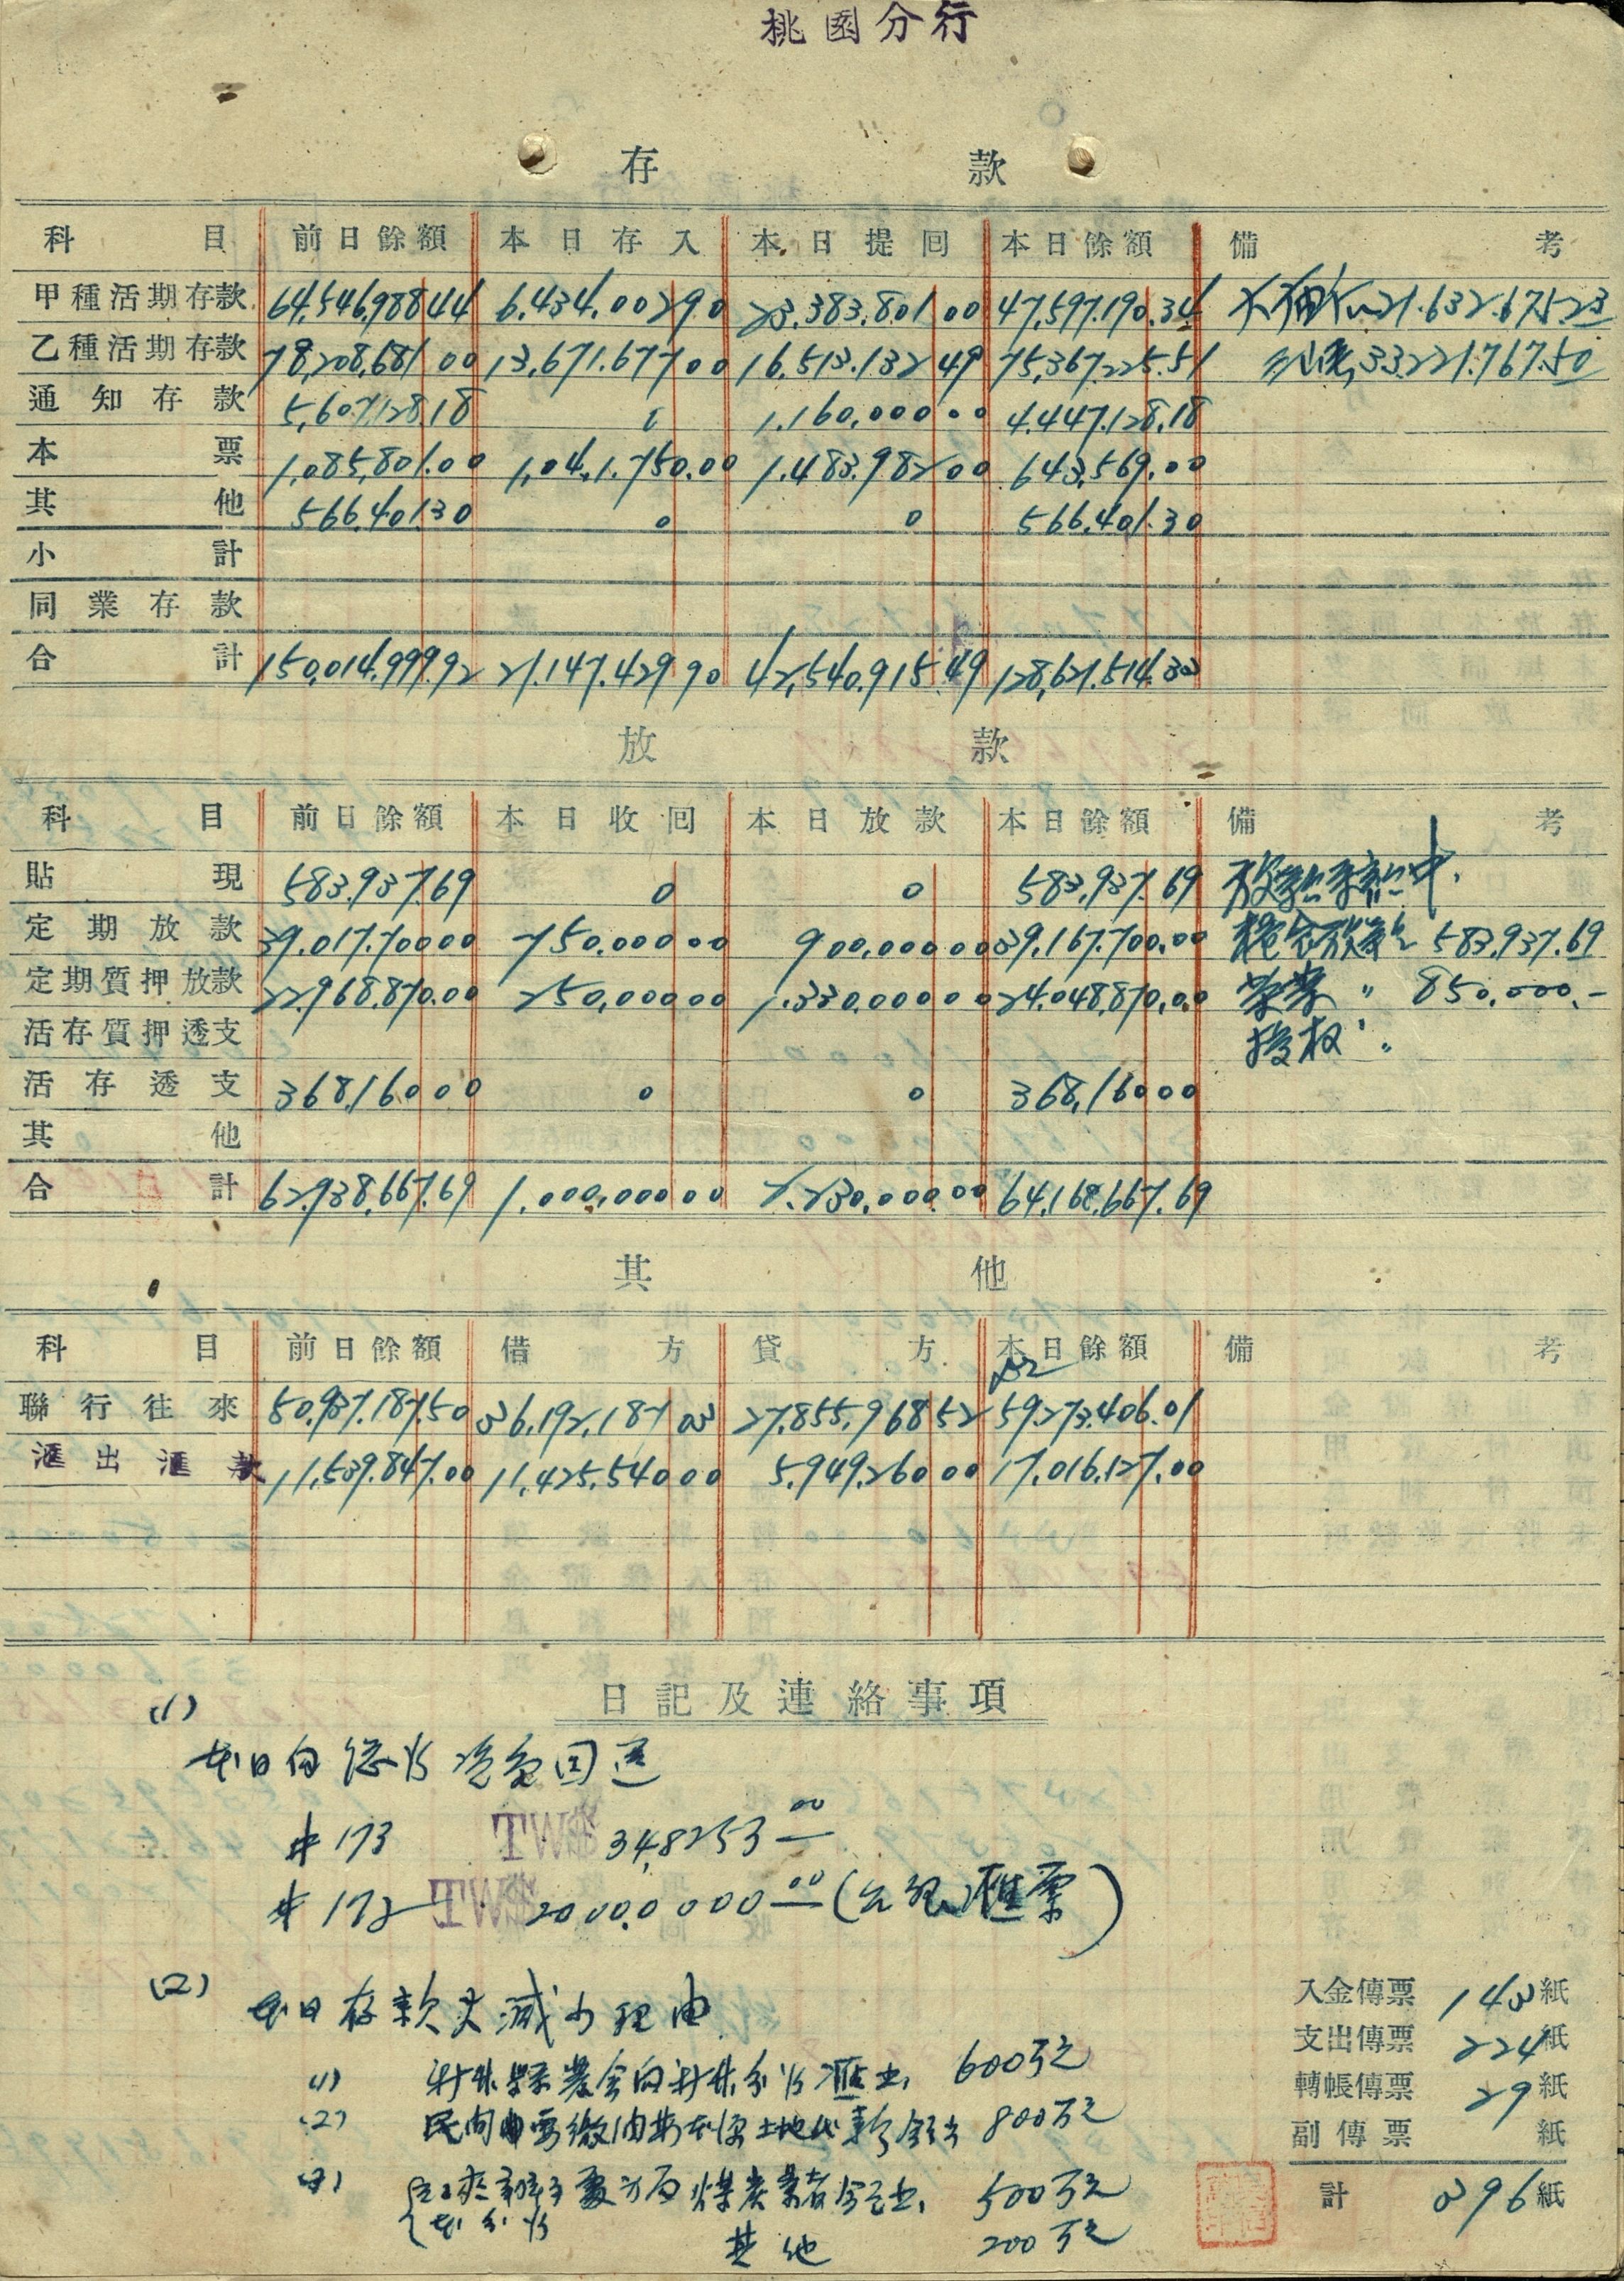 桃園分行
存 款
科目 前日餘額 本日存入 本日提回 本日餘額 備考
甲種活期存款 64,546,988.44 6,434,002.90 23,383,801.00 47,597,190.34 21,632,675.23
乙種活期存款 78,208,681.00 13,671,677.00 16,513,132.49 75,367,225.51 33,221,767.50
通知存款 5,607,128.18 0 1,160,000.00 4,447,128.18
本票 1,085,801.00 1,041,750.00 1,483,982.00 643,569.00
其他 566,401.30 0 0 566,401.30
小計
同業存款
合計 150,014,999.92 21,147,429.90 42,540,915.49 128,621,514.33
放 款
科目 前日餘額 本日收回 本日放款 本日餘額 備考
貼現 583,937.69 0 0 583,937.69 放款餘額中
定期放款 39,017,700.00 750,000.00 900,000.00 39,167,700.00 放款 583,937.69
定期質押放款 22,968,870.00 250,000.00 1,330,000.00 24,048,870.00 〃 850,000.-
活存質押透支 授权 〃
活存透支 368,160.00 0 0 368,160.00
其他
合計 62,938,667.69 1,000,000.00 2,230,000.00 64,168,667.69
其 他
科目 前日餘額 借方 貸方 本日餘額 備考
聯行往來 50,937,187.50 36,192,187.03 27,855,968.52 59,273,406.01
滙出滙款 11,539,847.00 11,425,540.00 5,949,260.00 17,016,127.00
日記及連絡事項
(1)
本日向總行 資金回送
#173 TW$ 348253.00
#172 TW$ 20000000.00 (台銀滙票)
(2) 本日存款大減少理由
(1) 新竹縣農会向新竹分行滙出 600万元
(2) 民間 土地代 800万元
(3) 煤炭業者 500万元
本分行
其他 200万元
入金傳票 143紙
支出傳票 224紙
轉帳傳票 29紙
副傳票 紙
計 396紙